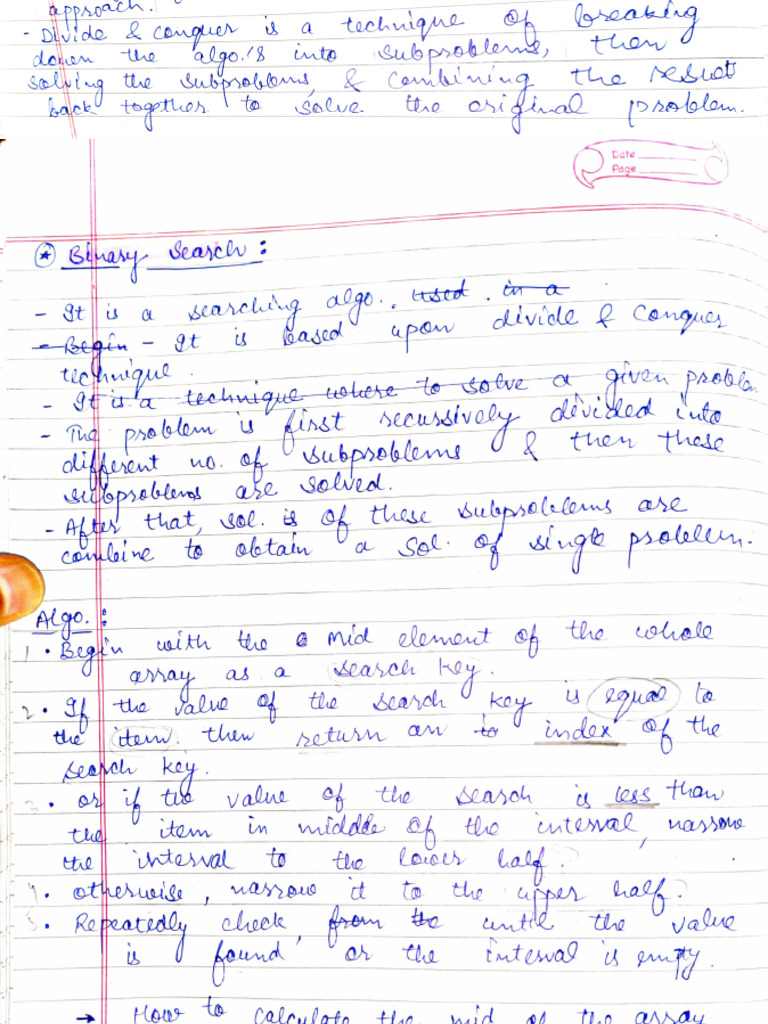 approach.
- Divide & conquer is a technique of breaking
down the algo.'s into subproblems, then
solving the subproblems, & combining the result
back together to solve the original problem.
Date
Page
* Binary Search :
- It is a searching algo. . used . in a
- Begin - It is based upon divide & conquer
technique.
- It is a technique where to solve a given problem
- The problem is first recussively divided into
different no. of subproblems & then these
subproblems are solved.
- After that, sol. is of these subproblems are
combine to obtain a sol. of single problem.
Algo. :
1 • Begin with the mid element of the whole
array as a search key.
2 • If the value of the search key is equal to
the item then return an to index of the
search key.
3 • or if the value of the search is less than
the item in middle of the interval, narrow
the interval to the lower half.
4 • otherwise, narrow it to the upper half.
5 • Repeatedly check, from the until the value
is found or the interval is empty.
→ How to calculate the mid of the array